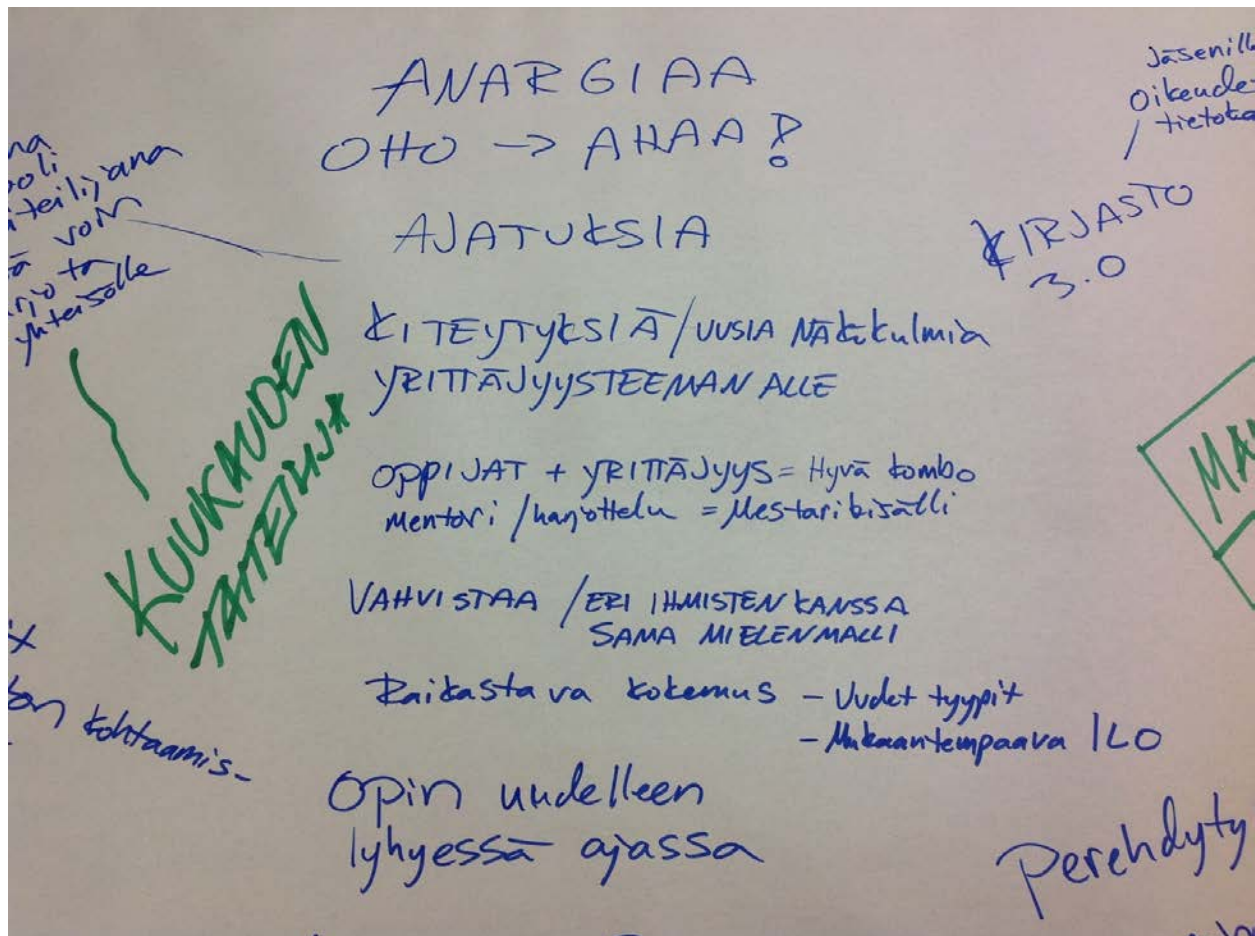 ANARGIAA
OHO → AHAA!
AJATUKSIA
KITEYTYKSIÄ / UUSIA NÄKÖKULMIA
YRITTÄJYYSTEEMAN ALLE
OPPIJAT + YRITTÄJYYS = Hyvä kombo
mentori / harjottelu = Mestaribisälli
VAHVISTAA / ERI IHMISTEN KANSSA
SAMA MIELENMALLI
Raikastava kokemus - Uudet tyypit
- Mukaantempaava ILO
Opin uudelleen
lyhyessä ajassa
voin
yhteisölle
KUUKAUDEN
TAITEILIJA
kohtaamis-
Jäsenill
Oikeude
tietoka
KIRJASTO
3.0
MA
Perehdyty